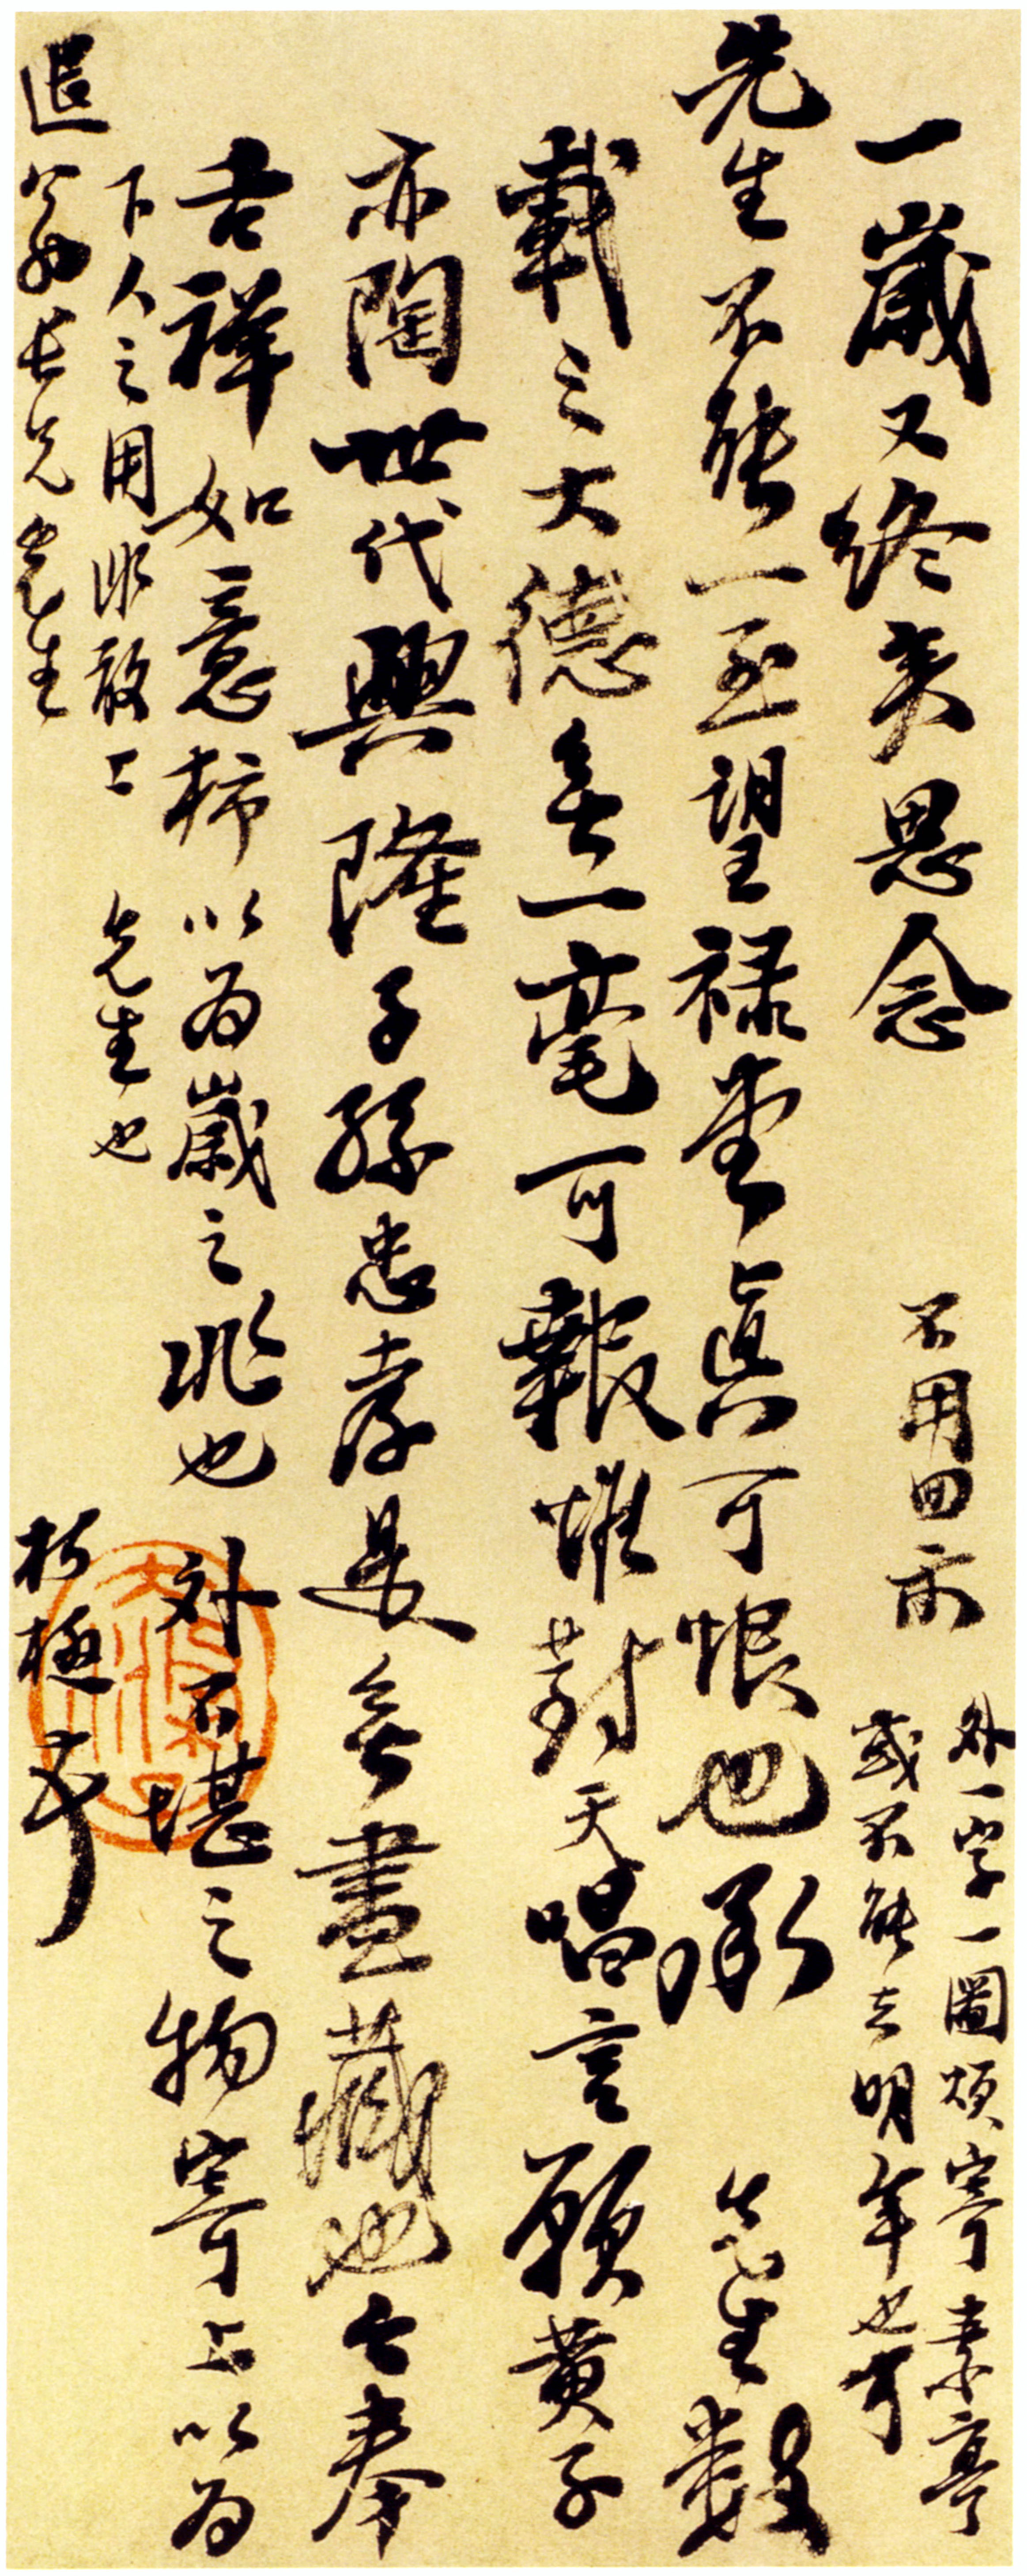 一歲又終矣思念
不用回示
外一字一圖煩寄素亭
或不能去明年也可
先生不能一至望祿堂真可恨也承 先生數
載之大德無一毫可報惟對天唱言願黃子
亦陶世代興隆子孫忠孝是無盡藏也今奉
吉祥如意柿以為歲之兆也外不堪之物寄上以為
下人之用非敢上 先生也
退公翁長兄先生 朽極